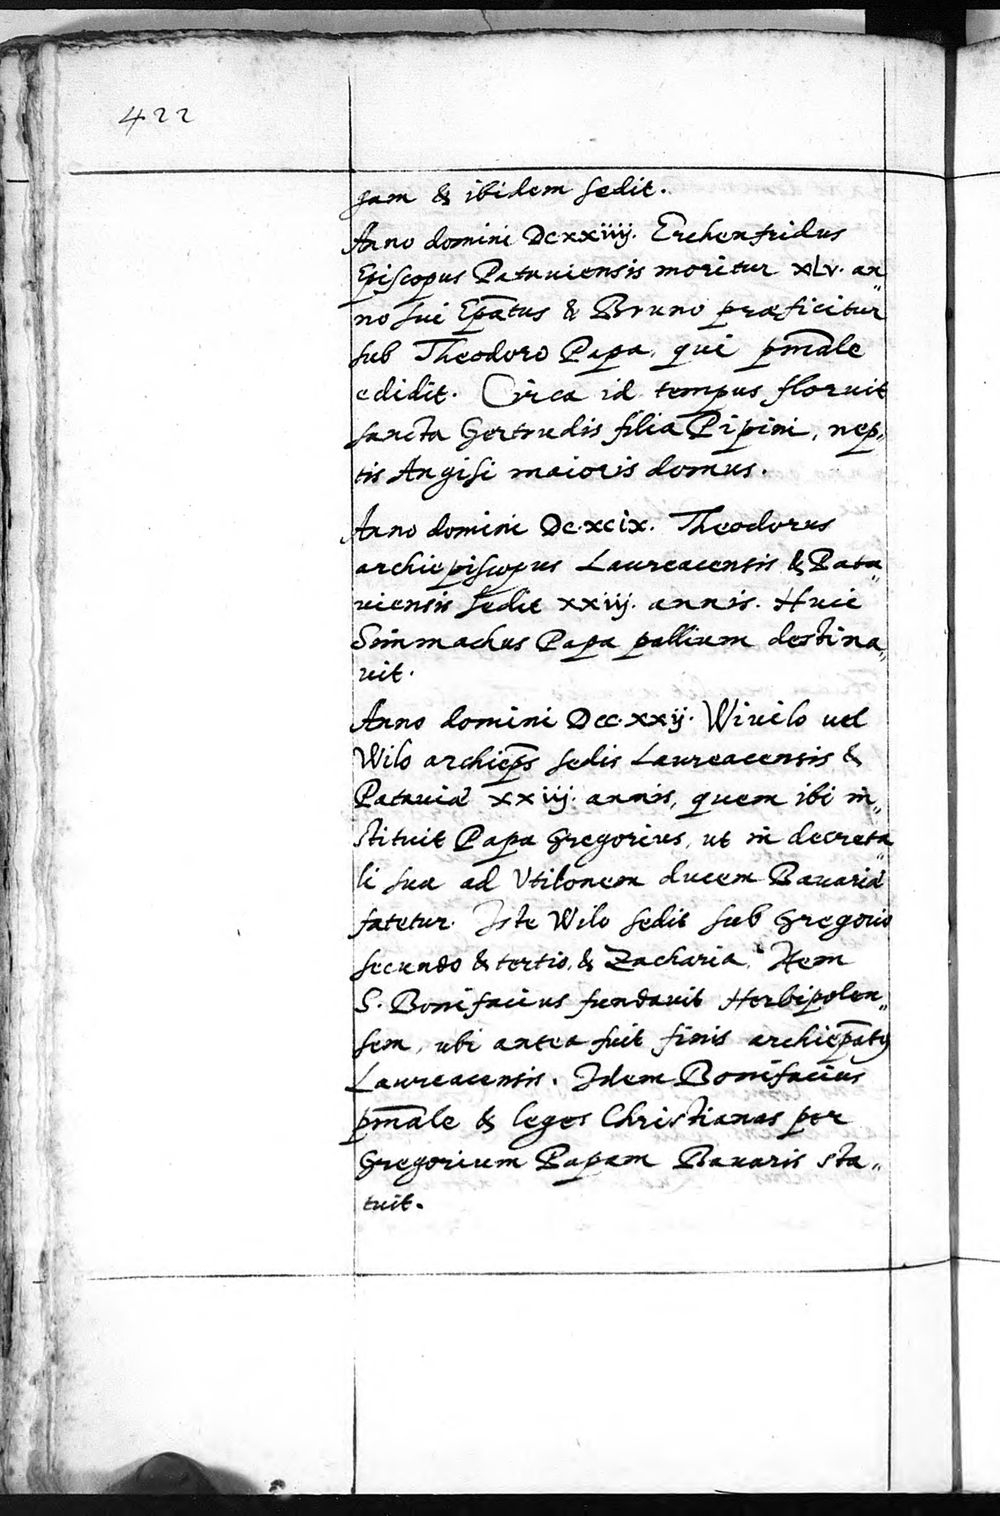 422
sam & ibidem sedit.
Anno domini Dcxxiiij. Erchenfridus
Episcopus Patauiensis moritur xLv. an„
no sui Ep̄atus & Bruno præficitur
sub Theodoro Papa, qui pm̄ale
edidit. Circa id tempus floruit
sancta Gertrudis filia Pipini, nep„
tis Angisi maioris domus.
Anno domini Dc.xcix. Theodorus
archiepiscopus Laureacensis & Pata„
uiensis sedit xxiij. annis. Huic
Simmachus Papa pallium destina„
uit.
Anno domini Dcc.xxij. Wiuilo uel
Wilo archiep̄s sedis Laureacensis &
Patauiæ xxiij. annis, quem ibi in„
stituit Papa Gregorius, ut in decreta„
li sua ad Vtilonem ducem Bauariæ
fatetur. Iste Wilo sedit sub Gregorio
secundo & tertio, & Zacharia. Item
S. Bonifacius fundauit Herbipolen„
sem, ubi antea fuit finis archiep̄atꝰ
Laureacensis. Idem Bonifacius
pm̄ale & leges Christianas per
Gregorium Papam Bauaris sta„
tuit.